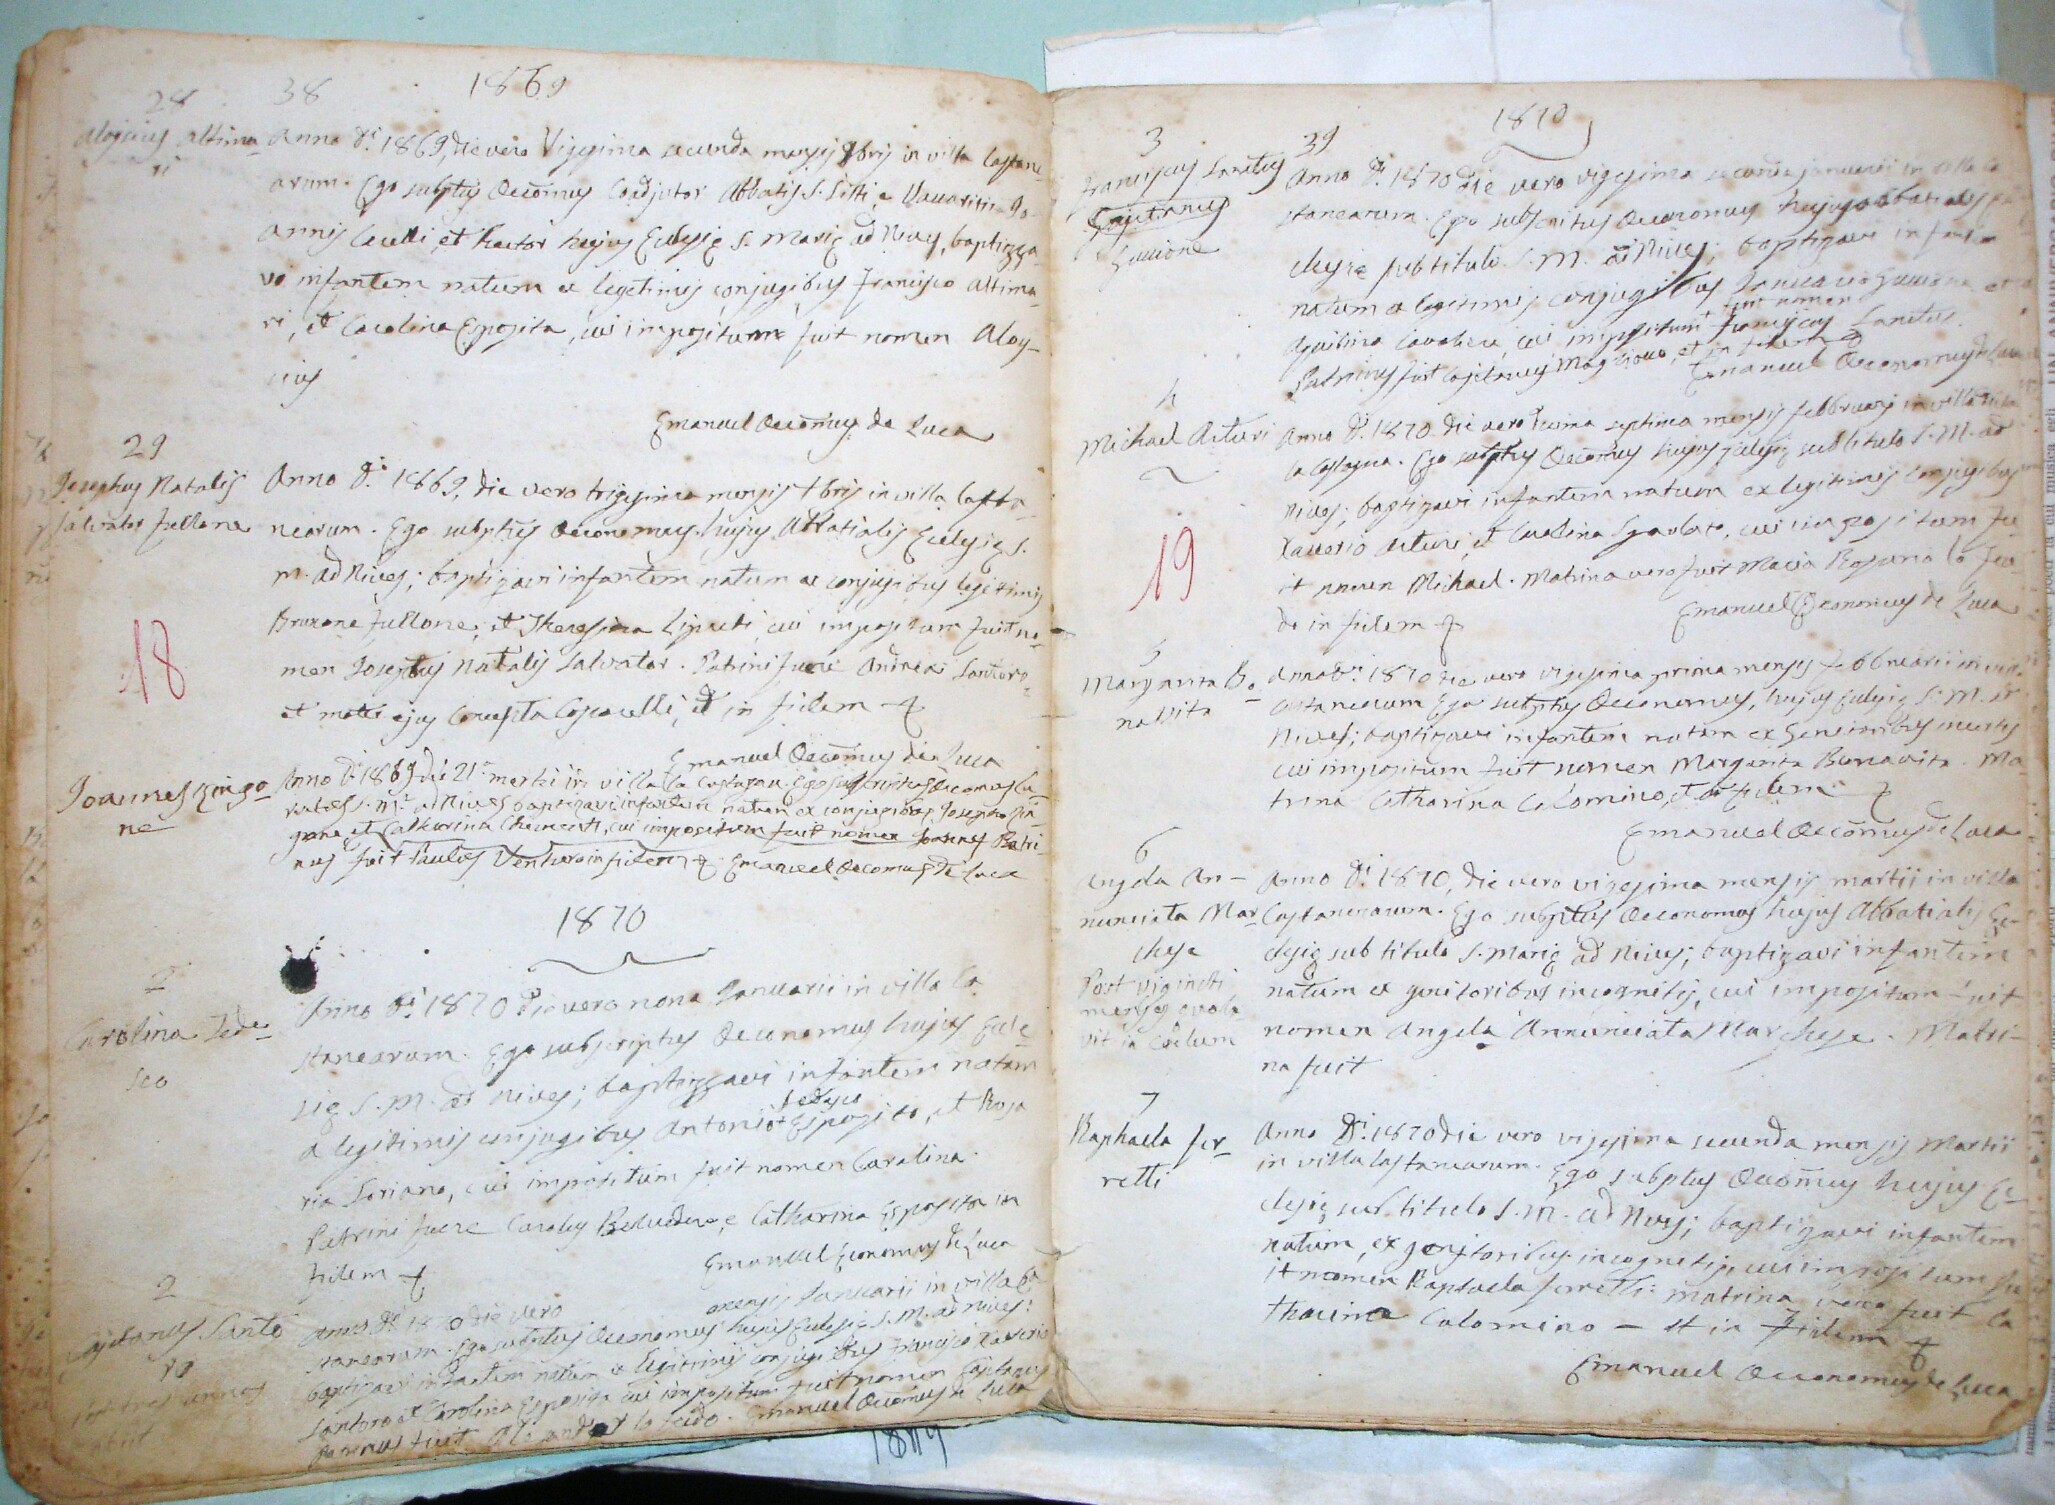 28 38 1869
Aloysius Altima-
ri
Anno D.i 1869, die vero Vigesima secunda mensis 9bris in villa Castane-
arum. Ego subptus Oecomus Coadjutor Abbatis S.
annis et Rector hujus Eclesię S. Marię ad Nives, baptizza-
vi infantem natum ex legitimis conjugibus Francisco Altima-
ri, et Carolina Esposita, cui impositum fuit nomen Aloy-
sius
Emanuel Oecomus de Luca
29
Josephus Natalis
Salvator Fullone
Anno D.i 1869, die vero trigesima mensis bris in villa Casta-
nearum. Ego subptus Oeconomus hujus Abbatialis Eclesię S.
M. ad Nives; baptizavi infantem natum ex conjugibus legitimis
Brunone Fullone, et Theresina cui impositum fuit no-
men Josephus Natalis Salvator. Patrini fuere Andreas Santoro
et mater ejus et in fidem +
Emanuel Oecomus de Luca
18
Joannes Zingo-
ne
Anno D.i 1869 die 21 martii in villa La Castagna. Ego subscriptus Oecomus Cu-
ratus S. M. ad Nives baptizavi infantem natum ex conjugibus Josepho Zin-
gone et Catharina Chimenti, cui impositum fuit nomen Joannes Patri-
nus fuit Paulus Ventura in fidem + Emanuel Oecomus de Luca
1870
Carolina Tede-
sco
Anno D.i 1870 die vero nona Januarii in villa Ca
stanearum. Ego subscriptus Oeconomus hujus Ecle-
się S. M. ad Nives; baptizzavi infantem natam
a legitimis conjugibus Antonio Esposito, et Rosa
ria Soriano, cui impositum fuit nomen Carolina.
Patrini fuere Carolus Belvedere, e Catharina Esposito in
fidem +
Emanuel Economus de Luca
2
Cajetanus Santo
ro
Post tres annos
obiit
Anno D.i 1870 die vero mensis Januarii in villa Ca
stanearum. Ego subptus Oeconomus hujus Eclesię S. M. ad Nives:
baptizavi infantem natum ex legitimis conjugibus Francisco Xaverio
Santoro et Carolina Esposito cui impositum fuit nomen Cajetanus
Patrinus fuit Alexander lo feudo. Emanuel Oecomus de Luca
1870
3 39
Franciscus Sanctus
Cajetanus
Guccione
Anno D.i 1870 die vero vigesima secunda januarii in villa Ca
stanearum. Ego subscritus Oeconomus hujus abbatialis Ec
clesię sub titulo S. M. ad Nives; baptizavi infantem
natum ex legitimis conjugibus et
Aquilina cui impositum fuit nomen Franciscus Sanctus.
Patrinus fuit Cajetanus et in fidem +
Emanuel Oeconomus de Luca
4
Michael Arturi
Anno D.i 1870 die vero Decima septima mensis febbruarj in villa
La Castagna. Ego subptus Oecomus hujus Eclesię sub titulo S. M. ad
Nives; baptizavi infantem natum ex legitimis conjugibus
Xaverio Arturi, et Carolina Sgarlato, cui impositum fu-
it nomen Michael. Matrina vero fuit Maria Rosaria lo feu-
do in fidem +
Emanuel Oeconomus de Luca
19
5
Margarita Bo-
navita
Anno D.i 1870 die vero vigesima prima mensis Febbruarii in villa
Castanearum Ego subptus Oeconomus, hujus Eclesię S. M. ad
Nives; baptizavi infantem natam ex genitoribus incertis
cui impositum fuit nomen Margarita Bonavita. Ma-
trina Catharina Colomino, et in fidem +
Emanuel Oecomus de Luca
6
Angela An-
nunciata Mar-
chese
Post viginti
menses evola-
vit in Coelum
Anno D.i 1870, die vero vigesima mensis martii in villa
Castanearum. Ego subptus Oeconomus hujus Abbatialis Ec-
clesię sub titulo S. Marię ad Nives; baptizavi infantem
natum ex genitoribus incognitis, cui impositum fuit
nomen Angela Annunciata Marchese. Matri-
na fuit
7
Raphaela Fer-
retti
Anno D.i 1870 die vero vigesima secunda mensis Martii
in villa Castanearum. Ego subptus Oecomus hujus Ec-
clesię sub titulo S. M. ad Nives; baptizavi infantem
natum, ex genitoribus incognitis, cui impositum fu
it nomen Raphaela Ferretti: matrina vero fuit Ca
tharina Colomino — et in fidem +
Emanuel Oeconomus de Luca